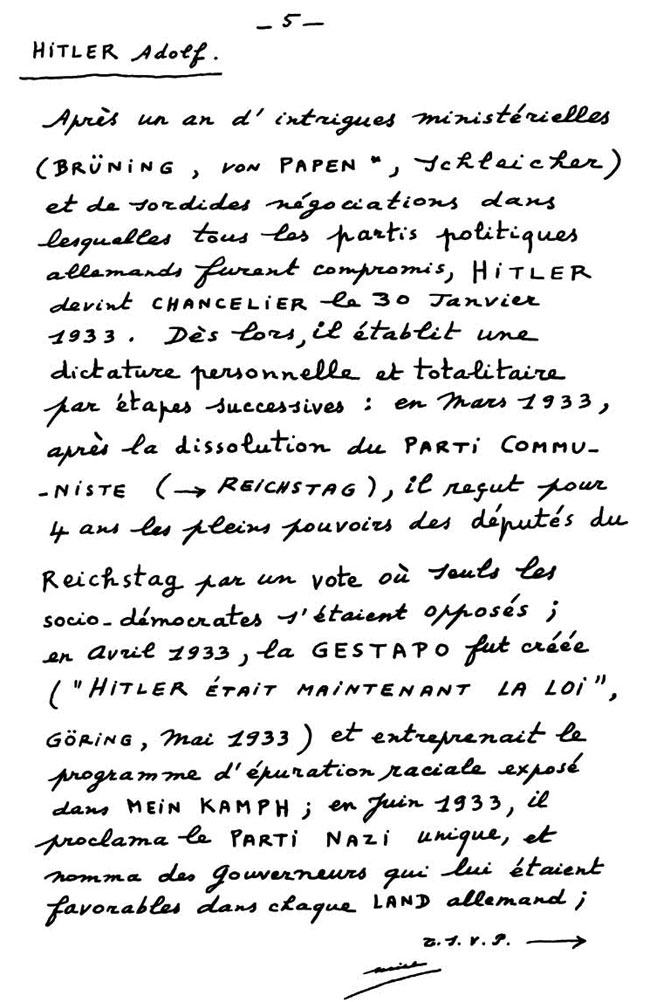 - 5 -
HiTLER Adolf.
Après un an d'intrigues ministérielles
(BRÜNiNG, von PAPEN *, Schleicher)
et de sordides négociations dans
lesquelles tous les partis politiques
allemands furent compromis, HiTLER
devint CHANCELiER le 30 Janvier
1933. Dès lors, il établit une
dictature personnelle et totalitaire
par étapes successives : en Mars 1933,
après la dissolution du PARTi COMMU-
-NiSTE (→ REiCHSTAG), il reçut pour
4 ans les pleins pouvoirs des députés du
Reichstag par un vote où seuls les
socio-démocrates s'étaient opposés ;
en Avril 1933, la GESTAPO fut créée
("HiTLER ÉTAiT MAiNTENANT LA LOi",
GÖRiNG, Mai 1933) et entreprenait le
programme d'épuration raciale exposé
dans MEiN KAMPH ; en Juin 1933, il
proclama le PARTi NAZi unique, et
nomma des Gouverneurs qui lui étaient
favorables dans chaque LAND allemand ;
T.S.V.P. →